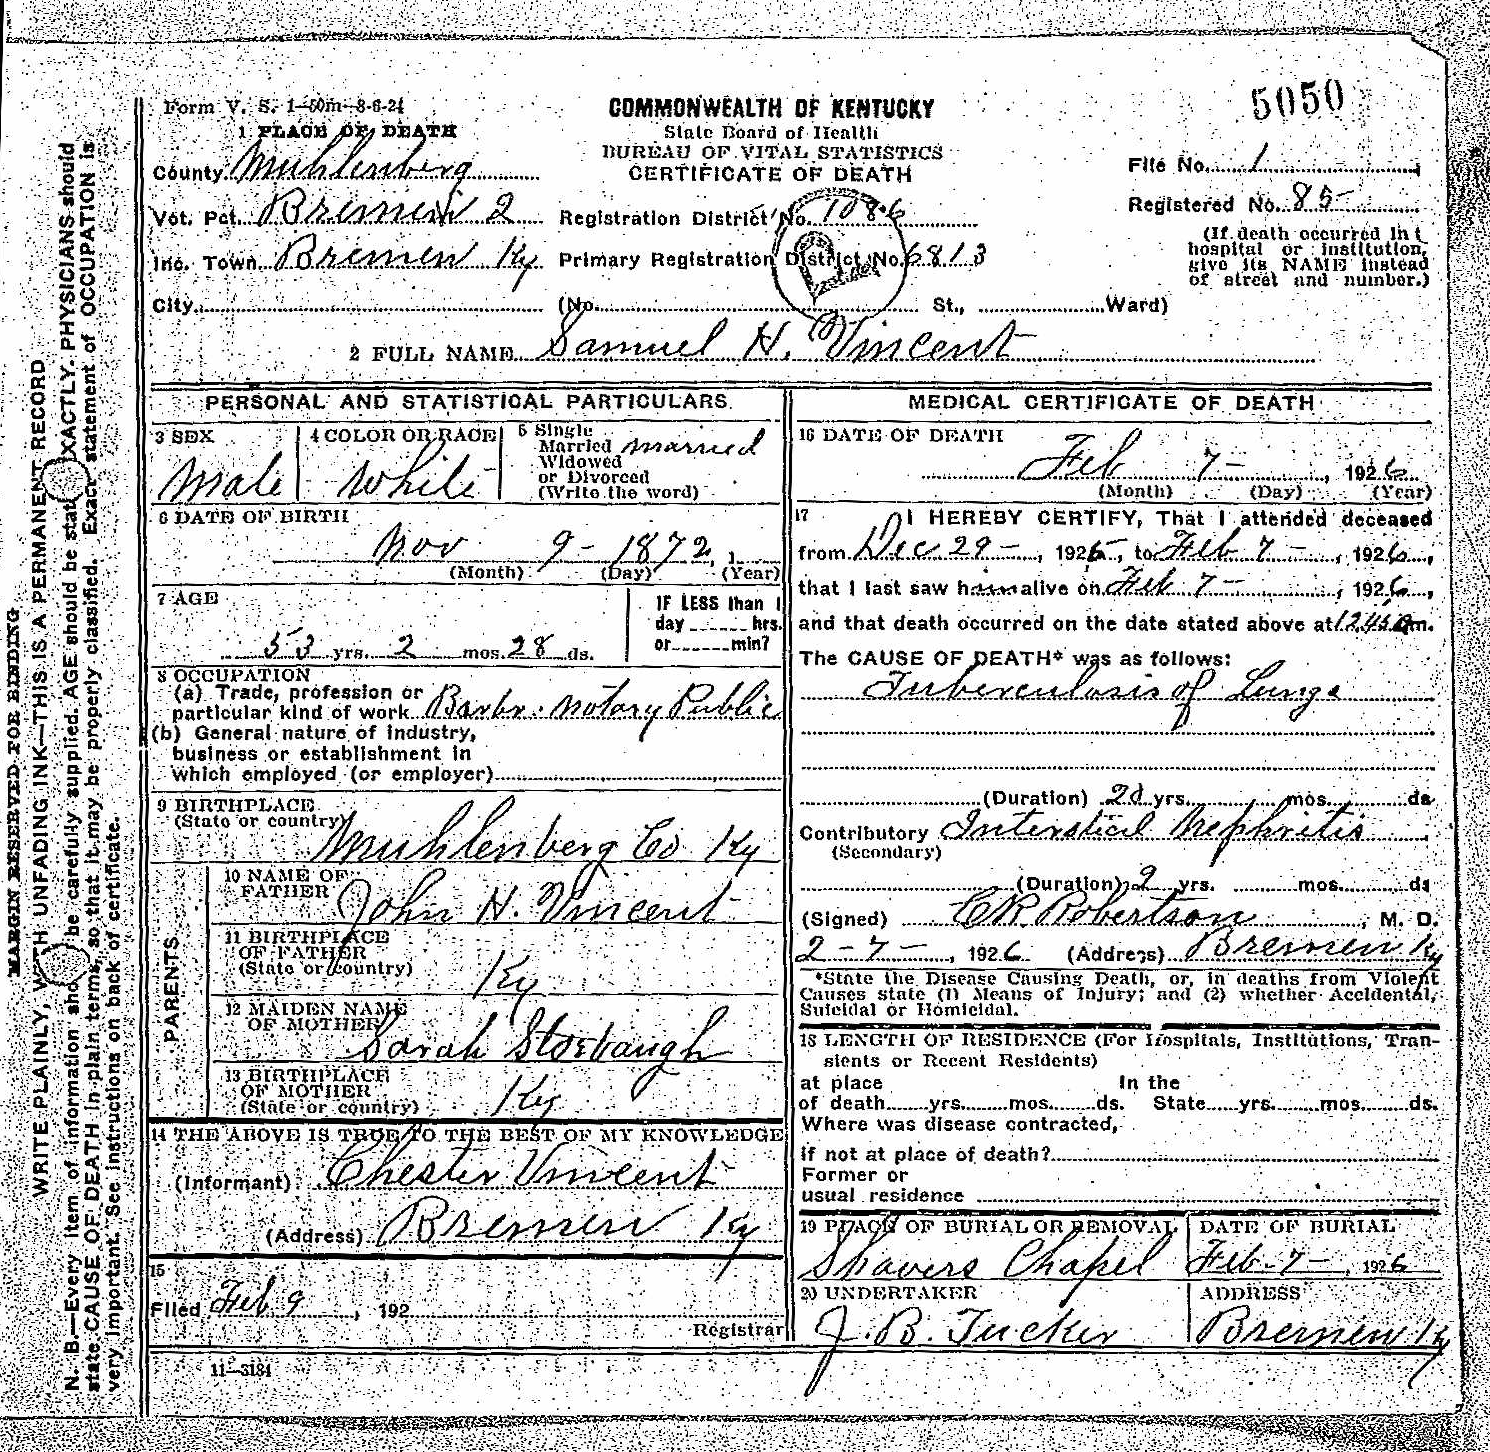 5050
Form V. S. 1—50m—8-6-24
COMMONWEALTH OF KENTUCKY
State Board of Health
BUREAU OF VITAL STATISTICS
CERTIFICATE OF DEATH
1 PLACE OF DEATH
County Muhlenberg
Vot. Pct. Bremen 2
Inc. Town Bremen Ky
City
Registration District No. 1086
Primary Registration District No. 6813
(No. St., Ward)
File No. 1
Registered No. 85
(If death occurred in a
hospital or institution,
give its NAME instead
of street and number.)
2 FULL NAME Samuel H. Vincent
PERSONAL AND STATISTICAL PARTICULARS
3 SEX
Male
4 COLOR OR RACE
White
5 Single
Married married
Widowed
or Divorced
(Write the word)
6 DATE OF BIRTH
Nov 9- 1872, 1
(Month) (Day) (Year)
7 AGE
53 yrs. 2 mos. 28 ds.
IF LESS than 1
day hrs.
or min?
8 OCCUPATION
(a) Trade, profession or
particular kind of work Barbr. Notary Public
(b) General nature of industry,
business or establishment in
which employed (or employer)
9 BIRTHPLACE
(State or country)
Muhlenberg Co Ky
PARENTS
10 NAME OF
FATHER John H. Vincent
11 BIRTHPLACE
OF FATHER
(State or country) Ky
12 MAIDEN NAME
OF MOTHER
Sarah Strobaugh
13 BIRTHPLACE
OF MOTHER
(State or country) Ky
14 THE ABOVE IS TRUE TO THE BEST OF MY KNOWLEDGE
(Informant) Chester Vincent
(Address) Bremen Ky
15
Filed Feb 9, 192
Registrar
11—3184
MEDICAL CERTIFICATE OF DEATH
16 DATE OF DEATH
Feb 7-, 1926
(Month) (Day) (Year)
17 I HEREBY CERTIFY, That I attended deceased
from Dec 29-, 1925, to Feb 7-, 1926,
that I last saw him alive on Feb 7-, 1926,
and that death occurred on the date stated above at 12.45 am.
The CAUSE OF DEATH* was as follows:
Tuberculosis of Lungs
(Duration) 20 yrs. mos. ds
Contributory Interstical Nephritis
(Secondary)
(Duration) 2 yrs. mos. ds
(Signed) C.R. Robertson, M. D.
2-7-, 1926 (Address) Bremen Ky
*State the Disease Causing Death, or, in deaths from Violent
Causes state (1) Means of Injury; and (2) whether Accidental,
Suicidal or Homicidal.
18 LENGTH OF RESIDENCE (For Hospitals, Institutions, Tran-
sients or Recent Residents)
at place In the
of death yrs. mos. ds. State yrs. mos. ds.
Where was disease contracted,
if not at place of death?
Former or
usual residence
19 PLACE OF BURIAL OR REMOVAL
Shavers Chapel
DATE OF BURIAL
Feb-7-, 1926
20 UNDERTAKER
J. B. Tucker
ADDRESS
Bremen Ky
MARGIN RESERVED FOR BINDING
WRITE PLAINLY, WITH UNFADING INK—THIS IS A PERMANENT RECORD
N. B.—Every item of information should be carefully supplied. AGE should be stated EXACTLY. PHYSICIANS should
state CAUSE OF DEATH in plain terms, so that it may be properly classified. Exact statement of OCCUPATION is
very important. See instructions on back of certificate.